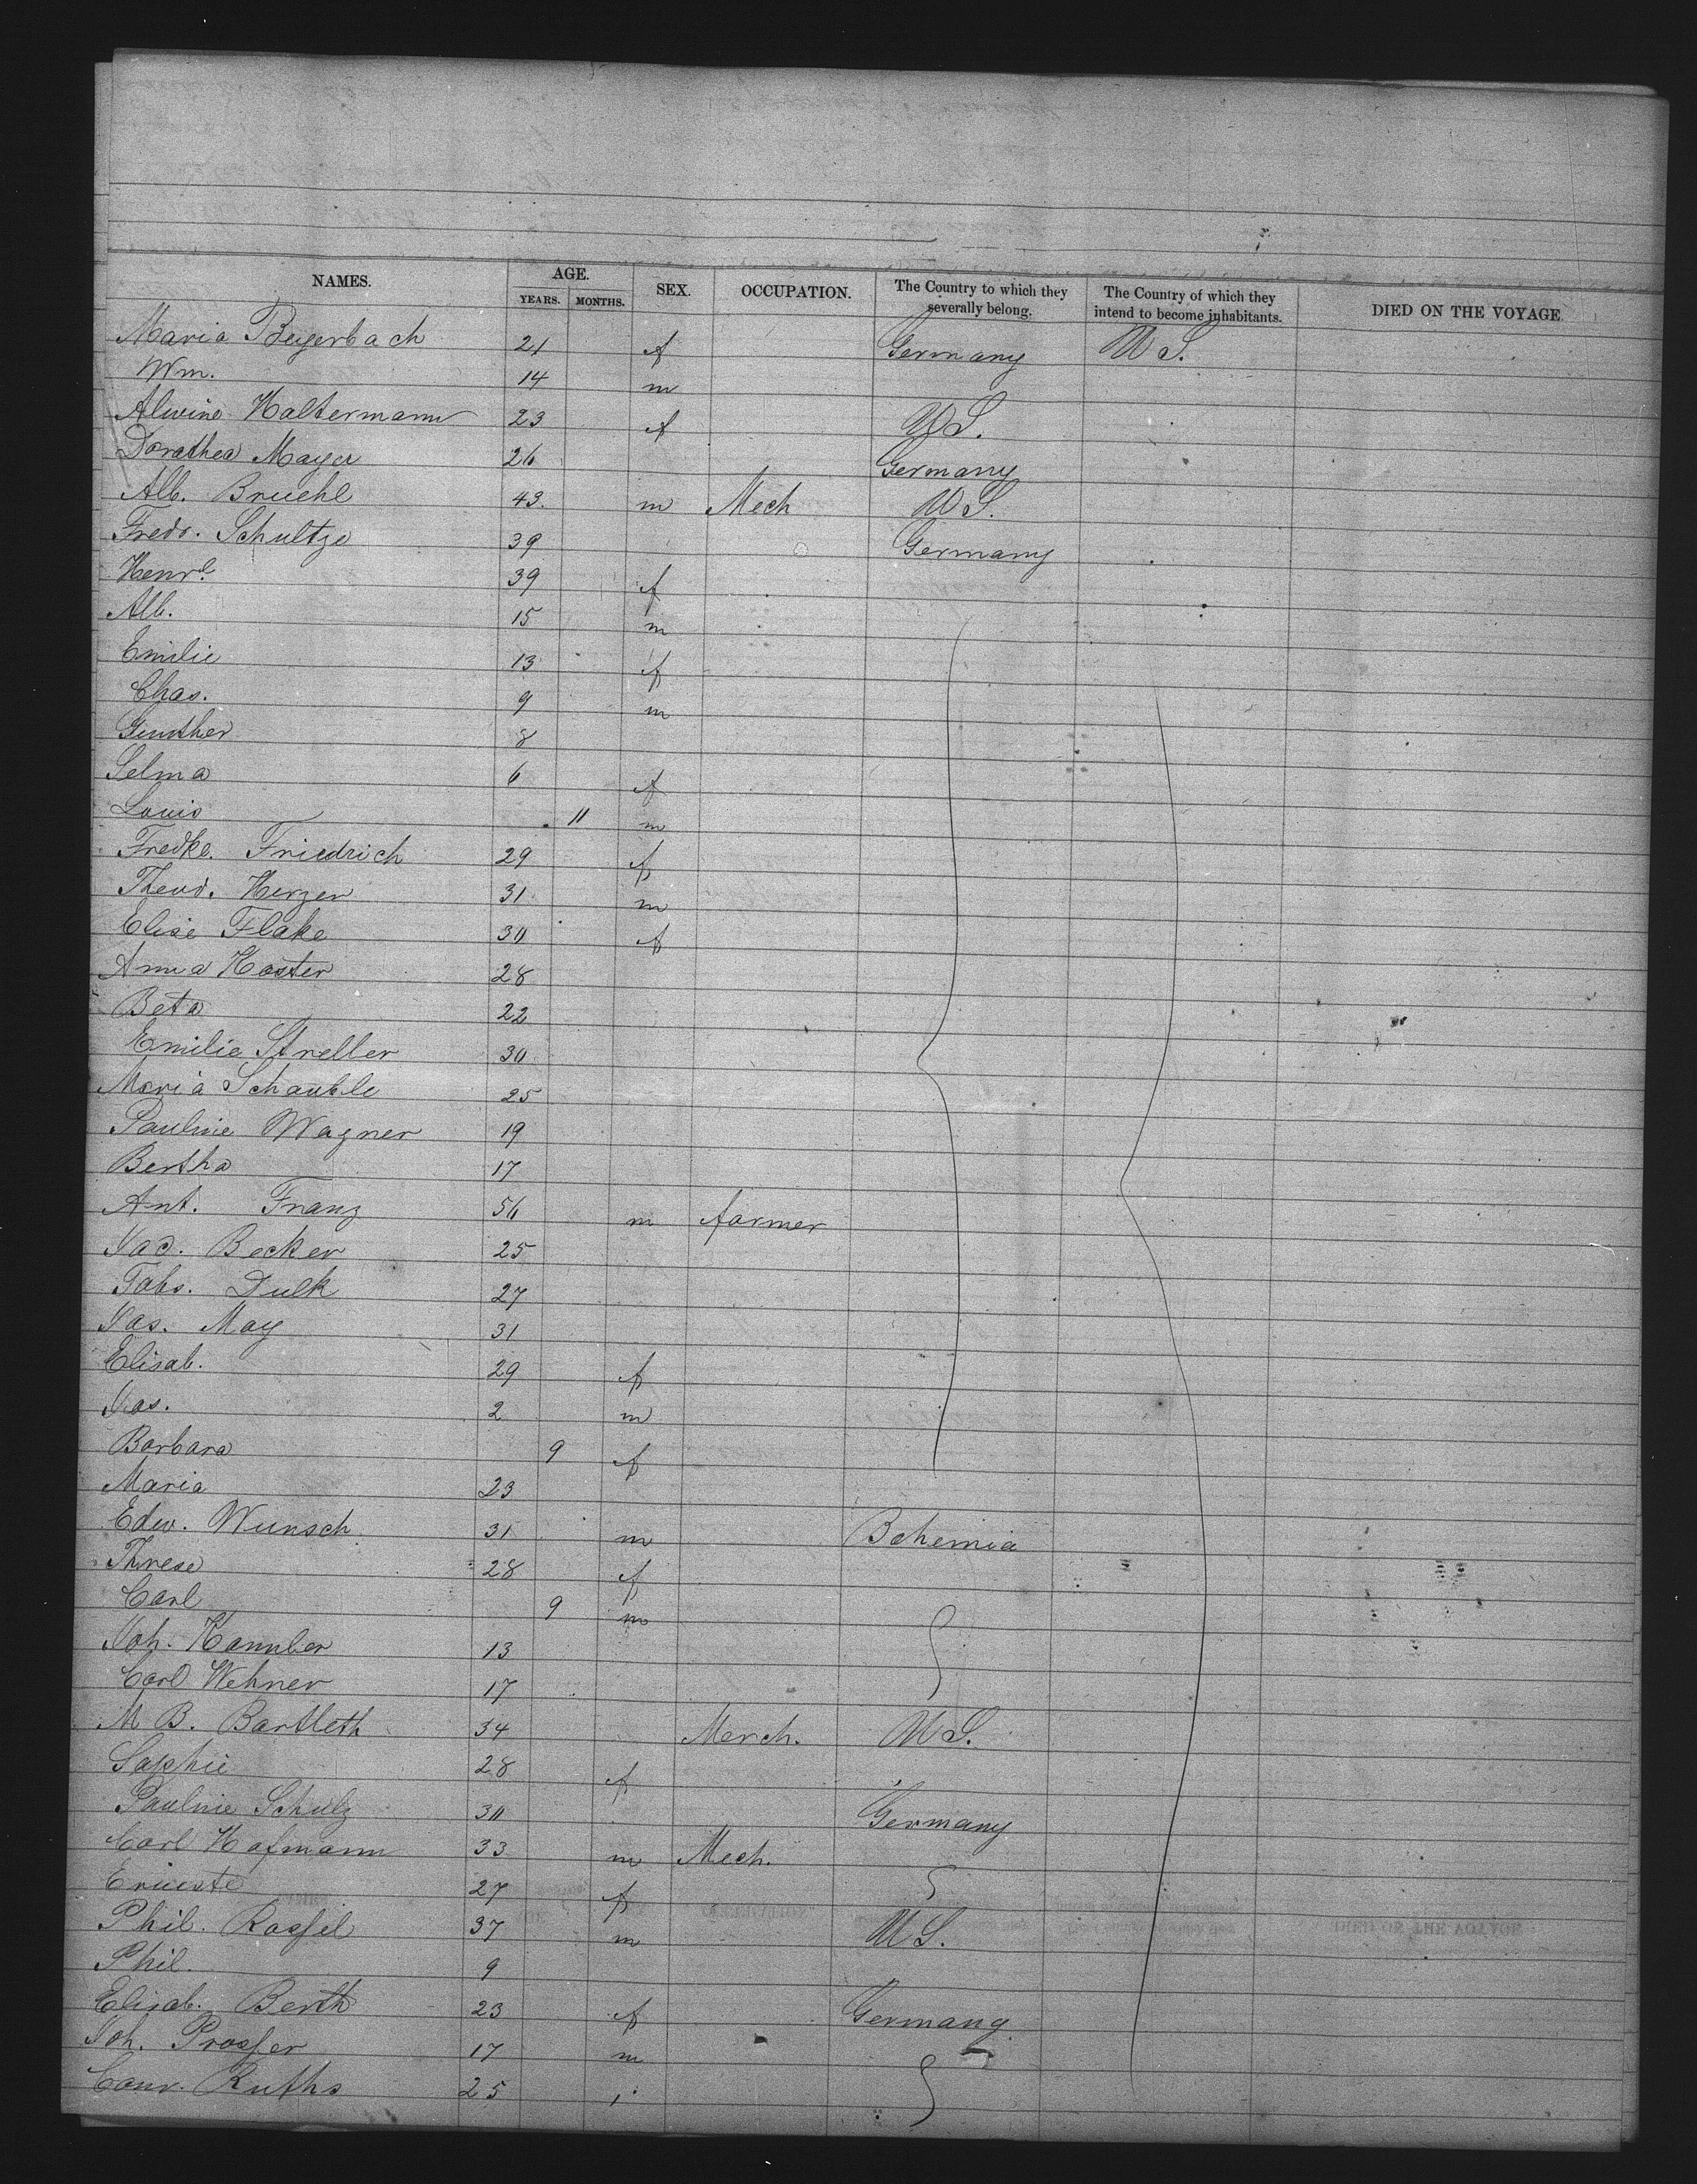 NAMES. AGE. SEX. OCCUPATION. The Country to which they severally belong. The Country of which they intend to become inhabitants. DIED ON THE VOYAGE
YEARS. MONTHS.
Maria Beyerbach 21 f Germany U S.
Wm. 14 m
Alwine Haltermann 23 f U S.
Dorathea Mayer 26 Germany
Alb. Bruehl 43. m Mech U S.
Fredr. Schultze 39 Germany
Henr. 39 f
Alb. 15 m
Emilie 13 f
Chas. 9 m
Gunther 8
Selma 6 f
Louis 11 m
Fredke. Friedrich 29 f
Theod. Herzer 31 m
Elise Flake 30 f
Anna Koster 28
Beta 22
Emilie Streller 30
Maria Schauble 25
Pauline Wagner 19
Bertha 17
Ant. Franz 56 m farmer
Jac. Becker 25
Tobs. Dulk 27
Jas. May 31
Elisab. 29 f
Jas. 2 m
Barbara 9 f
Maria 23
Edw. Wunsch 31 m Bohemia
Threse 28 f
Carl 9 m
Joh. 13
Carl Wehner 17
M B. Bartleth 34 Merch. U S.
Sophie 28 f
Pauline Schulz 30 Germany
Carl Hofmann 33 m Mech.
27 f
Phil. Rossel 37 m U S.
Phil. 9
Elisab. Berth 23 f Germany
Joh. Prosser 17 m
Conr. Ruths 25